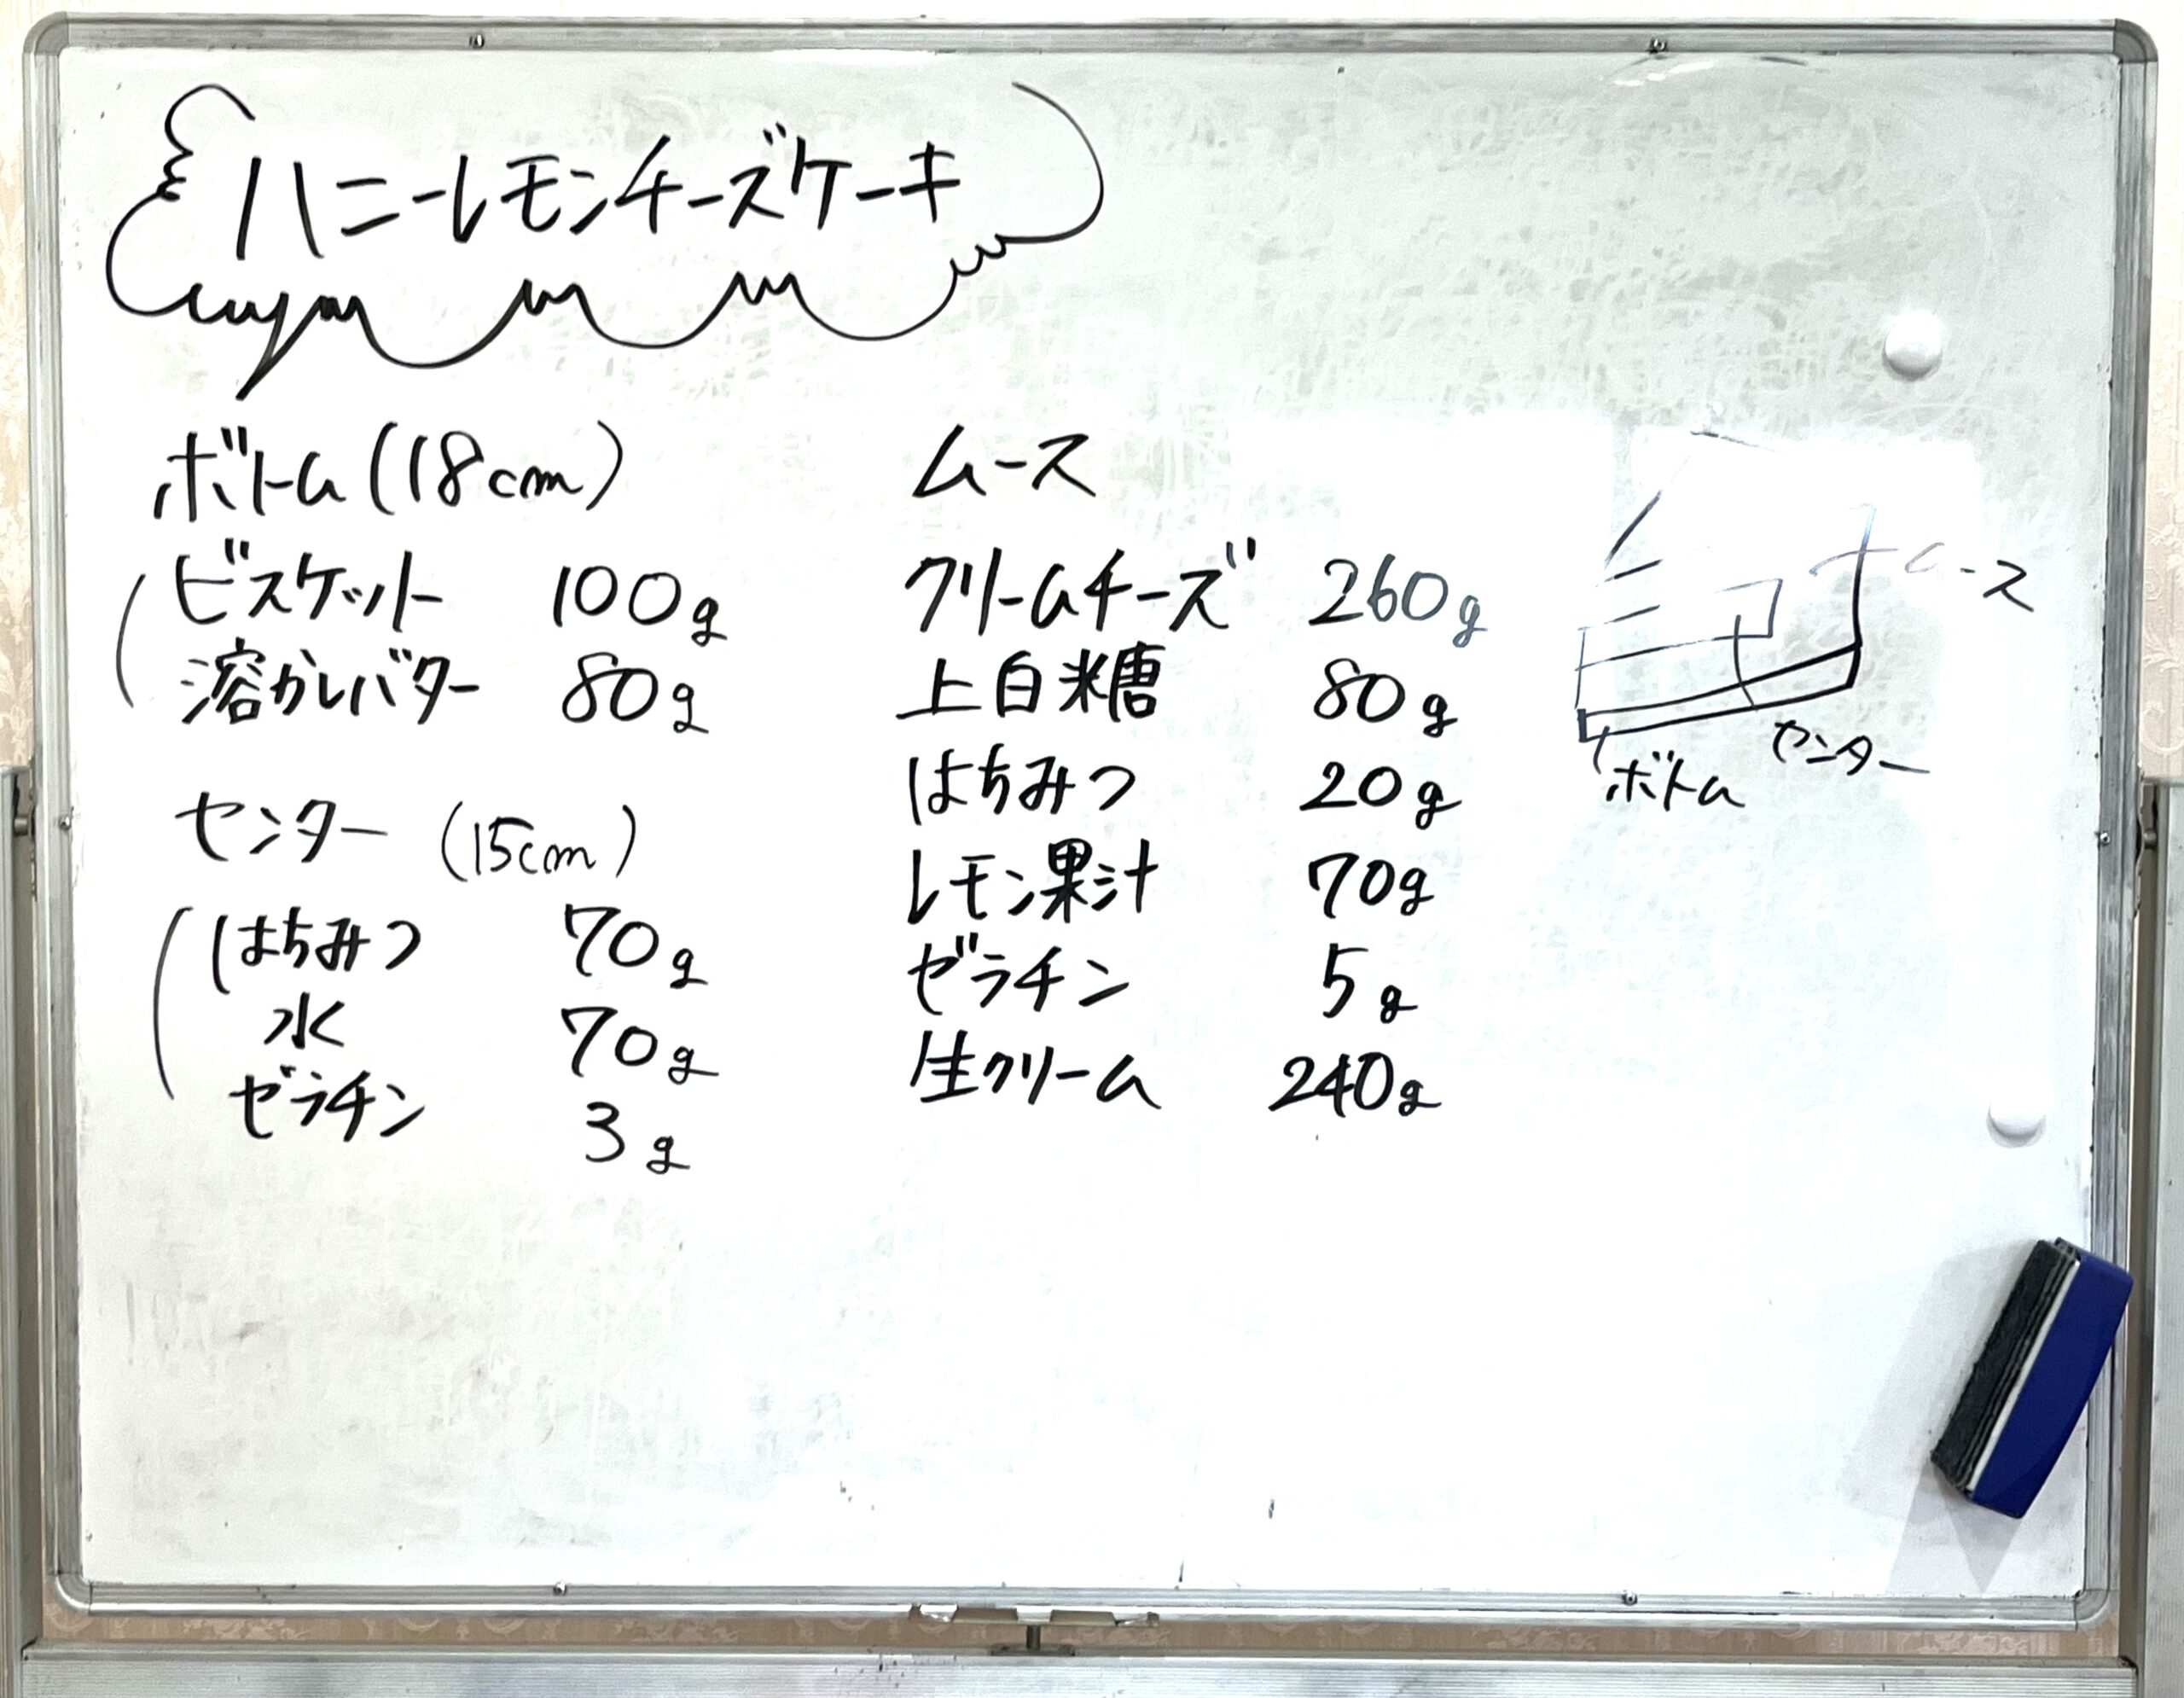 ハニーレモンチーズケーキ
ボトム(18cm)
ビスケット 100g
溶かしバター 80g
センター (15cm)
はちみつ 70g
水 70g
ゼラチン 3g
ムース
クリームチーズ 260g
上白糖 80g
はちみつ 20g
レモン果汁 70g
ゼラチン 5g
生クリーム 240g
ムース
センター
ボトム